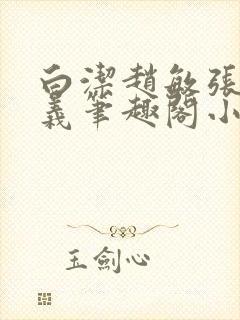 白潔趙敏張
義筆趣閣小
玉劍心